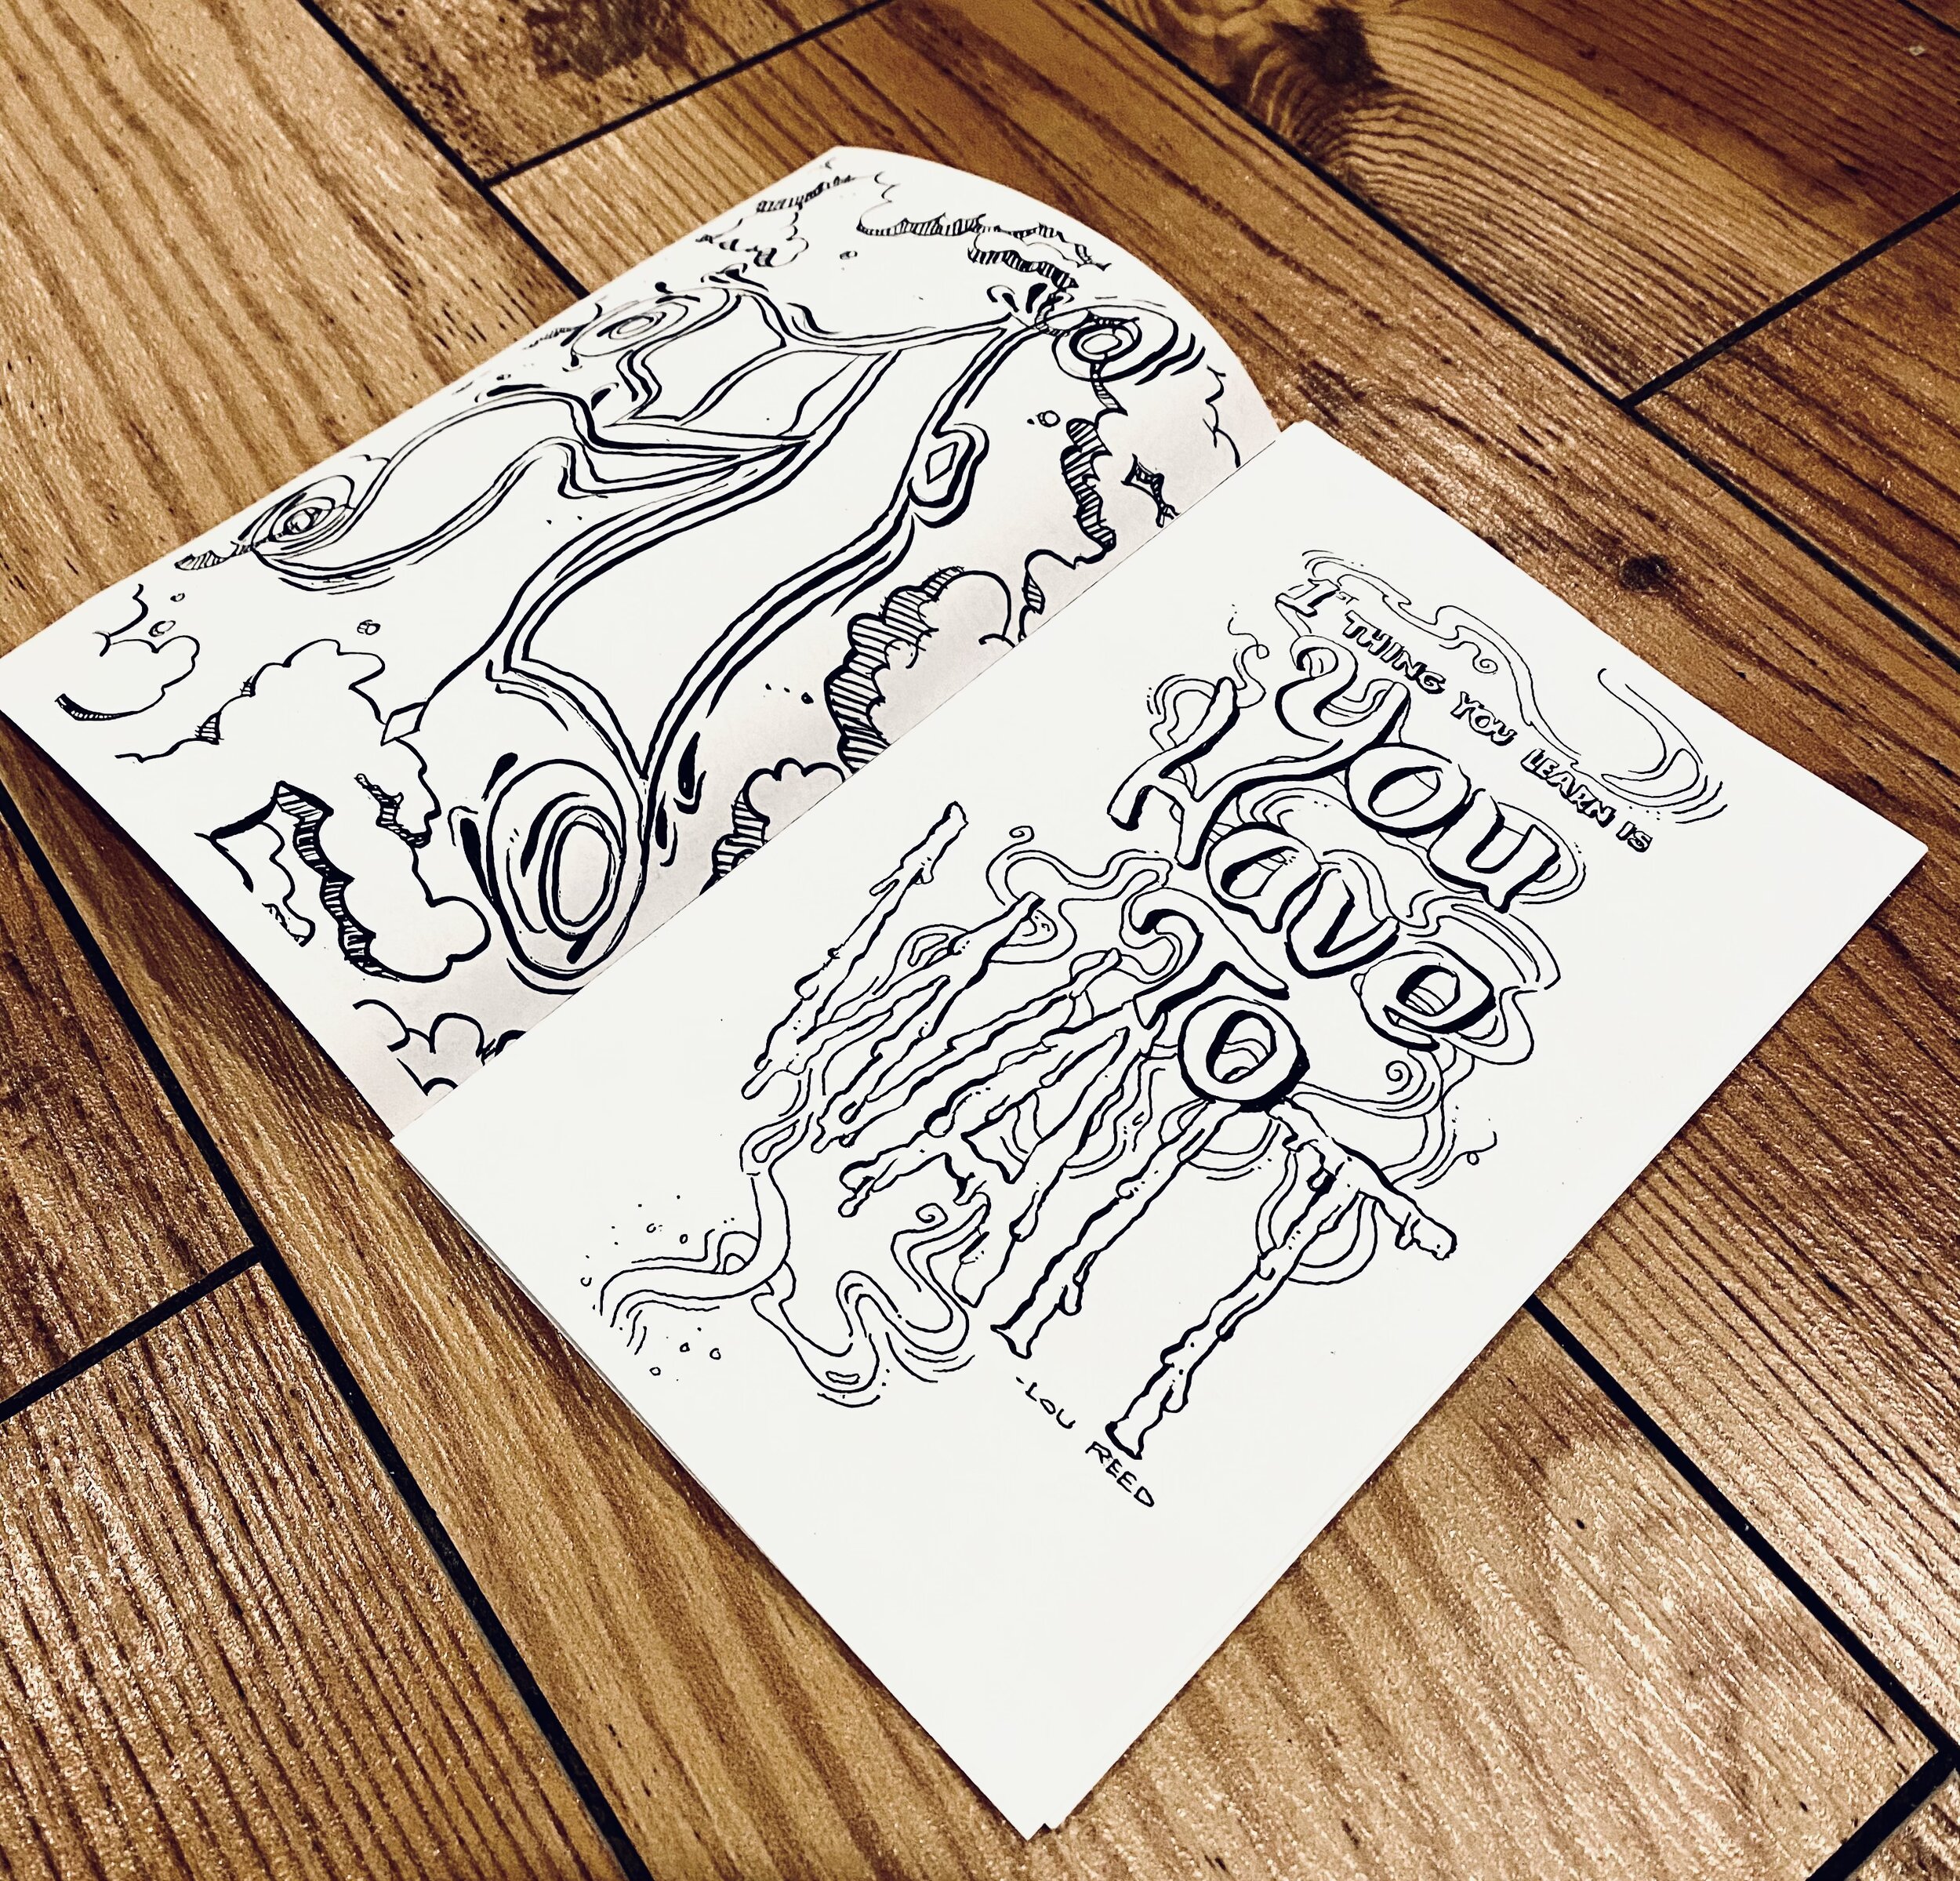 1ST THING YOU LEARN IS
You
Have
To
WAIT
-LOU REED